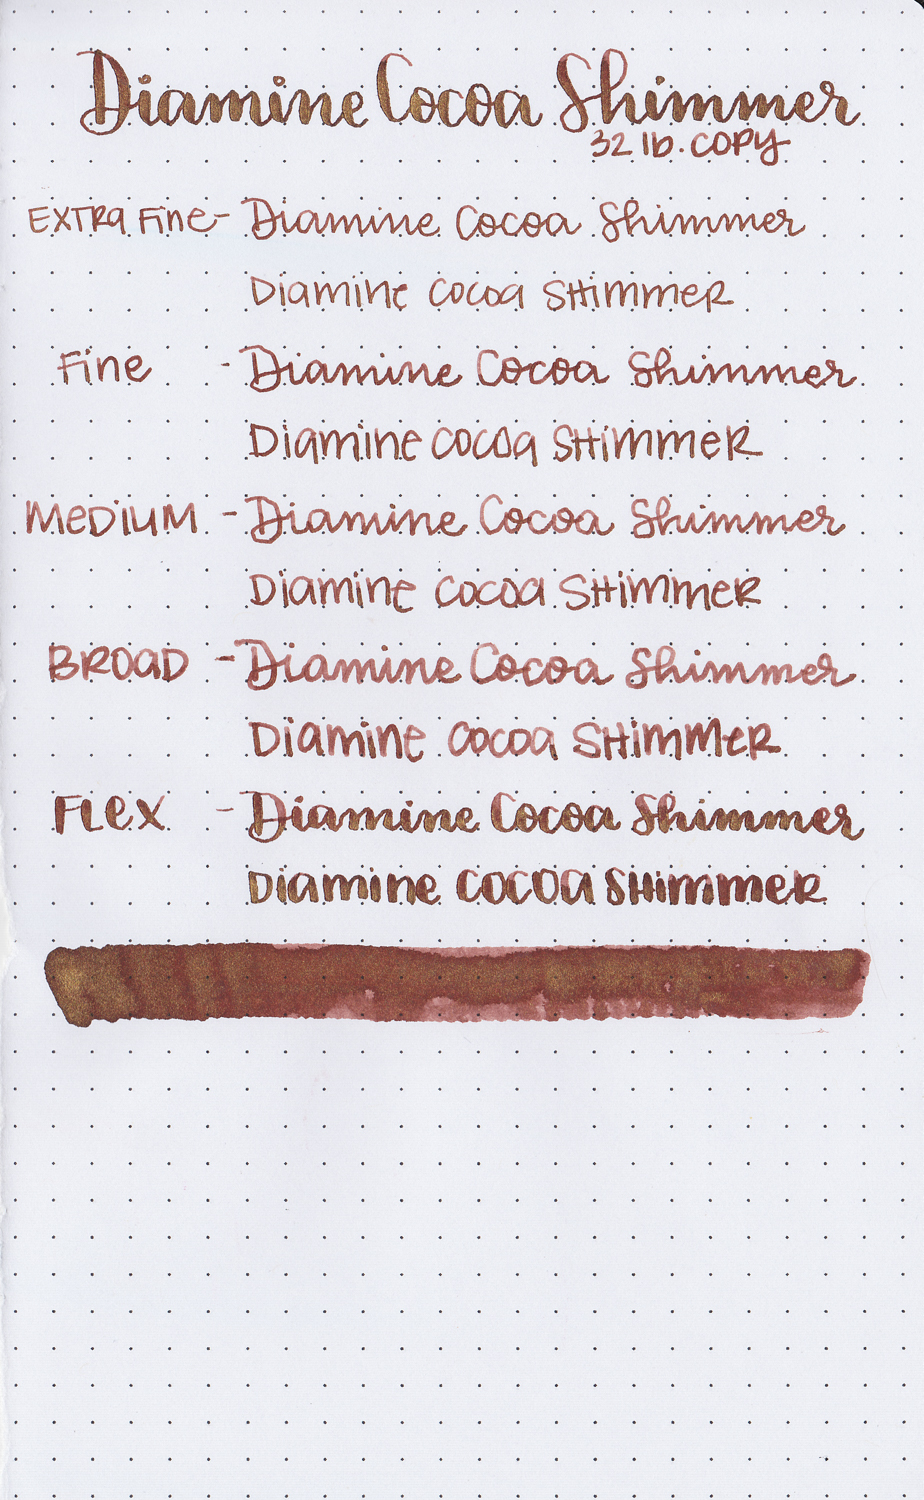 Diamine Cocoa Shimmer
32 lb. COPY
EXTRA FINE - Diamine Cocoa Shimmer
Diamine Cocoa SHimmeR
Fine - Diamine Cocoa Shimmer
Diamine Cocoa SHimmeR
MeDiUM - Diamine Cocoa Shimmer
Diamine Cocoa SHimmeR
BROAD - Diamine Cocoa Shimmer
Diamine Cocoa SHimMeR
FLex - Diamine Cocoa Shimmer
Diamine COCOA SHimmeR